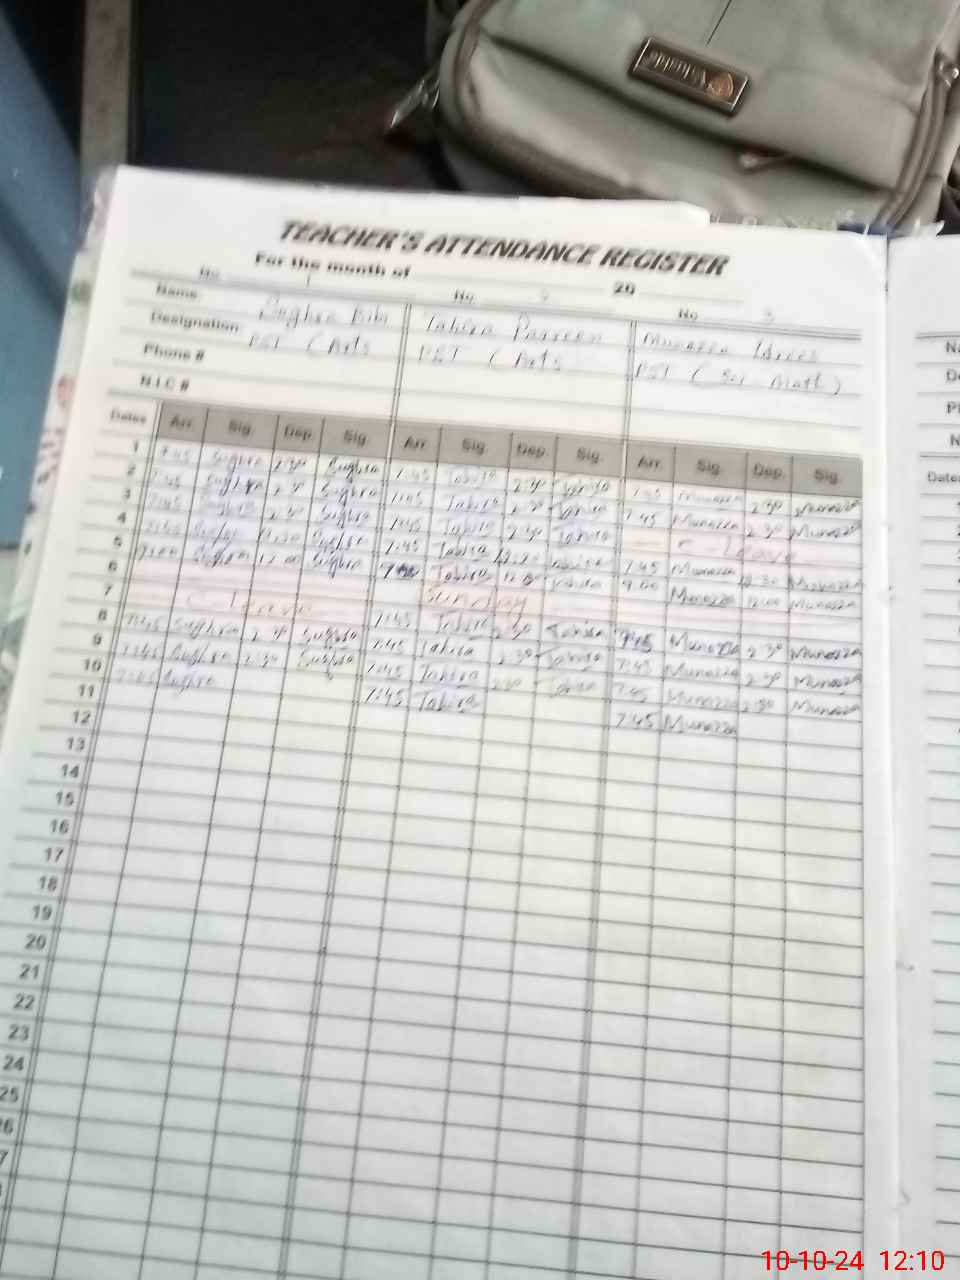 TEACHER'S ATTENDANCE REGISTER
For the month of 20
No. 1 No No 3
Name: Sughra Bibi Tahira Parveen Munazza Idrees
Designation: PST (Arts PST (Arts PST (Sci Math)
Phone #
N I C #
Dates Arr. Sig. Dep. Sig. Arr. Sig. Dep. Sig. Arr. Sig. Dep. Sig.
1 7:45 Sughra 2:30 Sughra 7:45 Tahira 2:30 Tahira 7:45 Munazza 2:30 Munazza
2 7:45 Sughra 2:30 Sughra 7:45 Tahira 2:30 Tahira 7:45 Munazza 2:30 Munazza
3 7:45 Sughra 2:30 Sughra 7:45 Tahira 2:30 Tahira C-Leave
4 7:45 Sughra Sughra 7:45 Tahira Tahira 7:45 Munazza 12:30 Munazza
5 Sughra 12:00 Sughra Tahira 12:00 Tahira 9:00 Munazza 12:00 Munazza
6 Sunday
7 C-Leave 7:45 Tahira 2:30 Tahira 7:45 Munazza 2:30 Munazza
8 7:45 Sughra 2:30 Sughra 7:45 Tahira 2:30 Tahira 7:45 Munazza 2:30 Munazza
9 7:45 Sughra 2:30 Sughra 7:45 Tahira 2:30 Tahira 7:45 Munazza 2:30 Munazza
10 7:45 Sughra 7:45 Tahira 7:45 Munazza
11
12
13
14
15
16
17
18
19
20
21
22
23
24
25
10-10-24 12:10